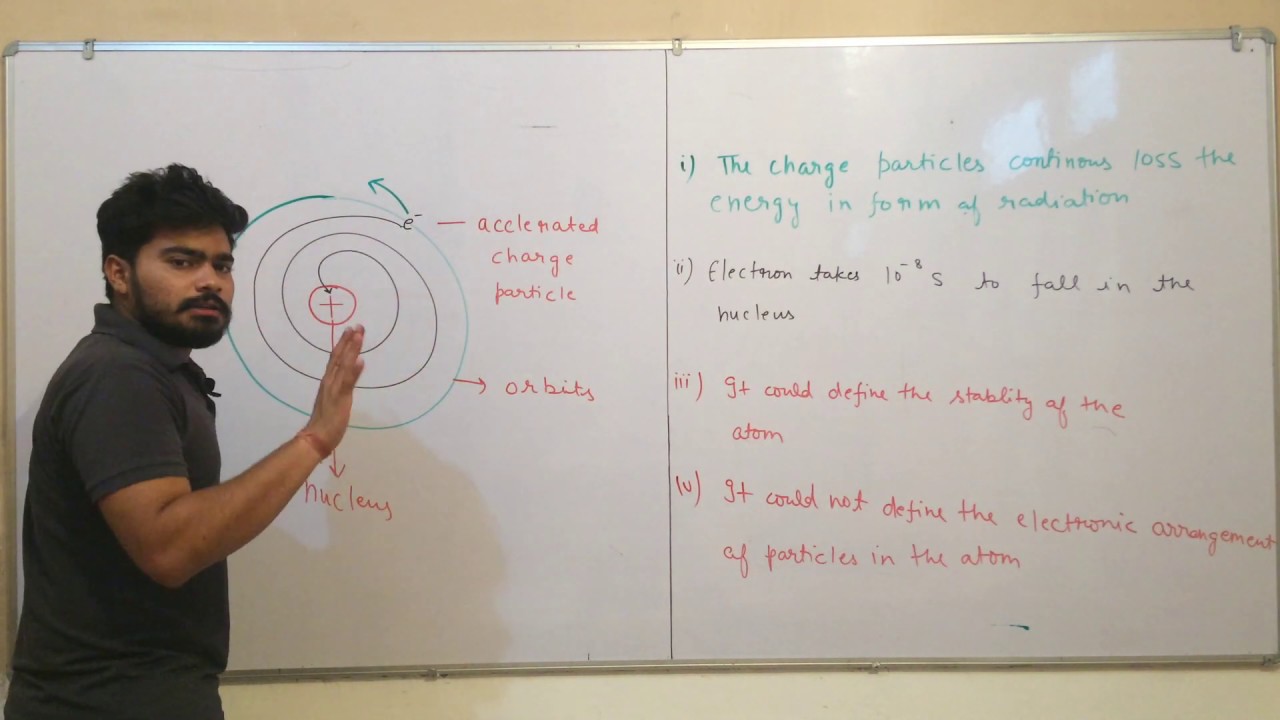 e⁻ — acclerated
charge
particle
+
→ orbits
nucleus
i) The charge particles continous loss the
energy in form of radiation
ii) Electron takes 10⁻⁸ s to fall in the
nucleus
iii) It could define the stablity of the
atom
iv) It could not define the electronic arrangement
of particles in the atom